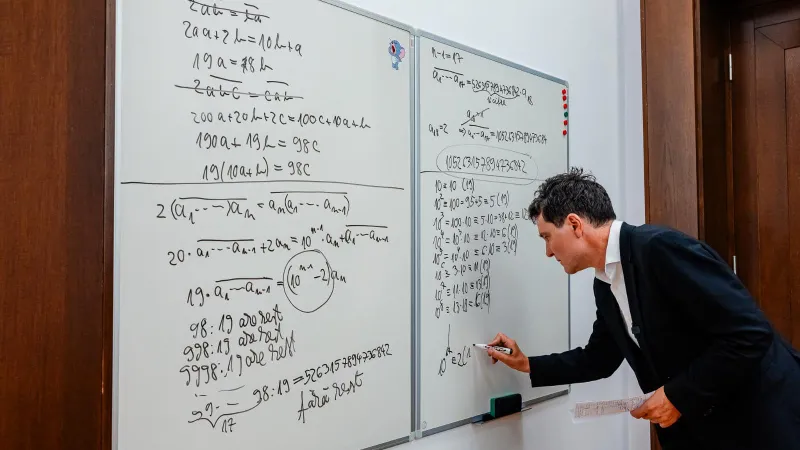 2ab = ba
2aa+2b = 10b+a
19a = 8b
2abc = cab
200a+20b+2c = 100c+10a+b
190a+19b = 98c
19(10a+b) = 98c
2(a₁...)aₙ = aₙ(a₁...aₙ₋₁)
20·a₁...aₙ₋₁+2aₙ = 10ⁿ⁻¹·aₙ+a₁...aₙ₋₁
19·a₁...aₙ₋₁ = (10ⁿ⁻¹-2)aₙ
98:19 are rest
998:19 are rest
9998:19 are rest
99...98:19 = 5263157894736842
17
fără rest
n-1=17
a₁...a₁₇ = 5263157894736842·a₁₈
a₁₈=2 ⇒ a₁...a₁₇ = 10526315789473684
105263157894736842
10 ≡ 10 (19)
10² = 100 = 95+5 ≡ 5 (19)
10⁴ ≡ 12·10 ≡ 6 (19)
10⁵ ≡ 6·10 ≡ 3 (19)
10⁶ ≡ 3·10 ≡ 11 (19)
10⁷ ≡ 11·10 ≡ 15 (19)
≡ 2(1